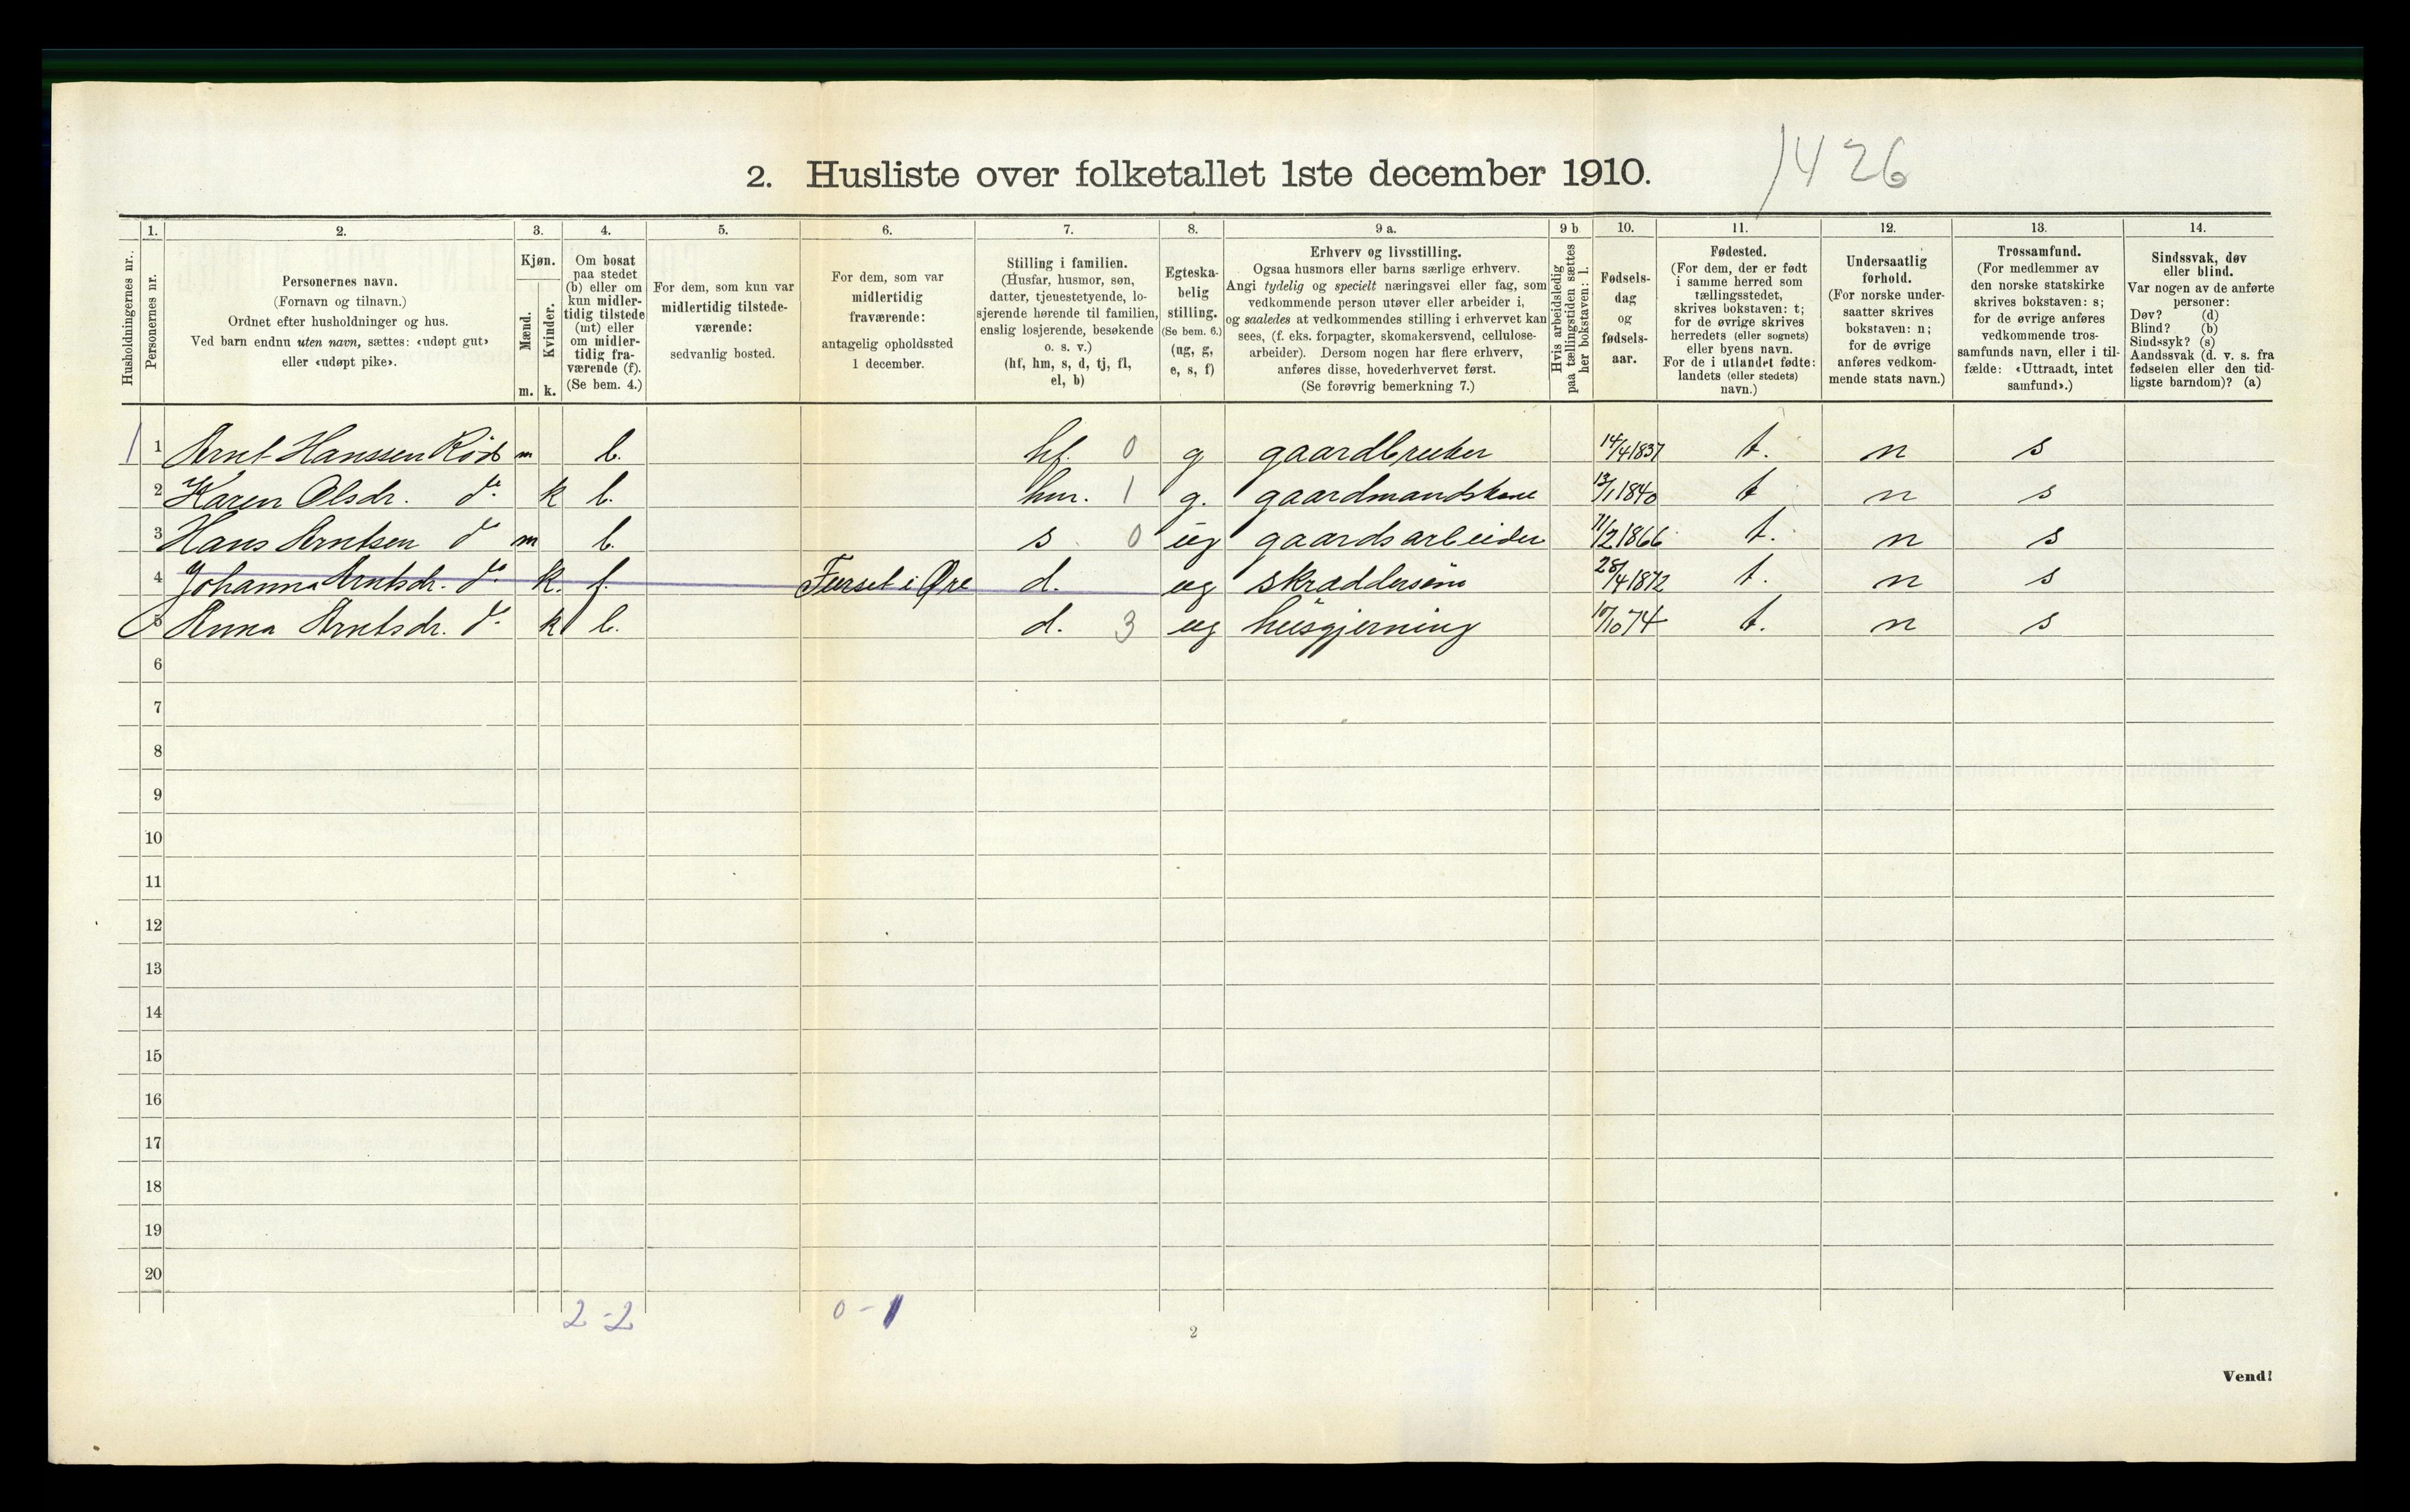 2. Husliste over folketallet 1ste december 1910.
1426
Husholdningernes nr.
1.
Personernes nr.
2.
Personernes navn.
(Fornavn og tilnavn.)
Ordnet efter husholdninger og hus.
Ved barn endnu uten navn, sættes: «udøpt gut»
eller «udøpt pike».
3.
Kjøn.
Mænd.
Kvinder.
m. k.
4.
Om bosat
paa stedet
(b) eller om
kun midler-
tidig tilstede
(mt) eller
om midler-
tidig fra-
værende (f).
(Se bem. 4.)
5.
For dem, som kun var
midlertidig tilstede-
værende:
sedvanlig bosted.
6.
For dem, som var
midlertidig
fraværende:
antagelig opholdssted
1 december.
7.
Stilling i familien.
(Husfar, husmor, søn,
datter, tjenestetyende, lo-
sjerende hørende til familien,
enslig losjerende, besøkende
o. s. v.)
(hf, hm, s, d, tj, fl,
el, b)
8.
Egteska-
belig
stilling.
(Se bem. 6.)
(ug, g,
e, s, f)
9 a.
Erhverv og livsstilling.
Ogsaa husmors eller barns særlige erhverv.
Angi tydelig og specielt næringsvei eller fag, som
vedkommende person utøver eller arbeider i,
og saaledes at vedkommendes stilling i erhvervet kan
sees, (f. eks. forpagter, skomakersvend, cellulose-
arbeider). Dersom nogen har flere erhverv,
anføres disse, hovederhvervet først.
(Se forøvrig bemerkning 7.)
9 b.
Hvis arbeidsledig
paa tællingstiden sættes
her bokstaven: l.
10.
Fødsels-
dag
og
fødsels-
aar.
11.
Fødested.
(For dem, der er født
i samme herred som
tællingsstedet,
skrives bokstaven: t;
for de øvrige skrives
herredets (eller sognets)
eller byens navn.
For de i utlandet fødte:
landets (eller stedets)
navn.)
12.
Undersaatlig
forhold.
(For norske under-
saatter skrives
bokstaven: n;
for de øvrige
anføres vedkom-
mende stats navn.)
13.
Trossamfund.
(For medlemmer av
den norske statskirke
skrives bokstaven: s;
for de øvrige anføres
vedkommende tros-
samfunds navn, eller i til-
fælde: «Uttraadt, intet
samfund».)
14.
Sindssvak, døv
eller blind.
Var nogen av de anførte
personer:
Døv? (d)
Blind? (b)
Sindssyk? (s)
Aandssvak (d. v. s. fra
fødselen eller den tid-
ligste barndom)? (a)
1 1 Arnt Hanssen Rød m b. hf. 0 g gaardbruker 14/4 1837 t. n s
2 Karen Olsdr. do. k b. hm. 1 g. gaardmandskone 13/1 1840 t n s
3 Hans Arntsen do m b. s 0 ug gaardsarbeider 11/2 1866 t. n s
4 Johanna Arntsdr. do. k. f. i Øre d. ug 28/4 1872 t. n s
5 Anna Arntsdr. do. k b. d. 3 ug husgjerning 10/10 74 t. n s
6
7
8
9
10
11
12
13
14
15
16
17
18
19
20
2-2 0-1
2
Vend!